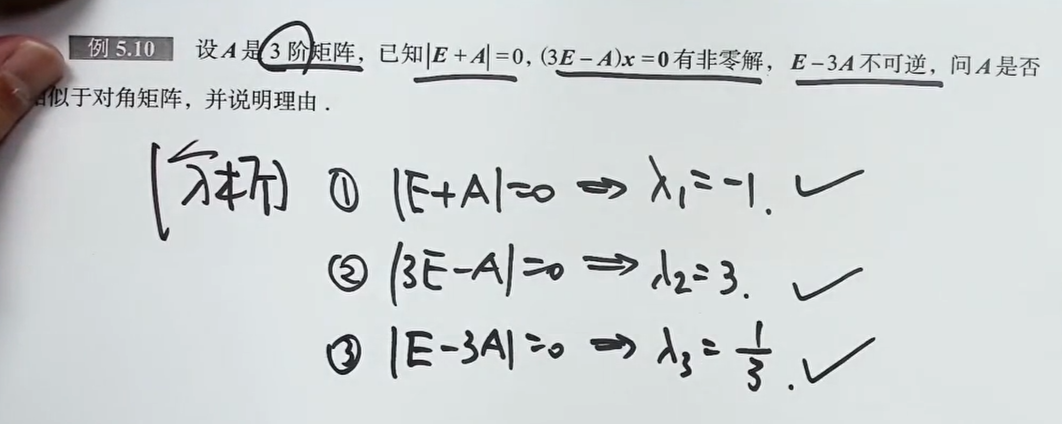 例 5.10 设A是3阶矩阵，已知|E+A|=0，(3E−A)x=0有非零解，E−3A不可逆，问A是否
似于对角矩阵，并说明理由．
[分析] ① |E+A|=0 ⇒ λ₁=-1. ✓
② |3E-A|=0 ⇒ λ₂=3. ✓
③ |E-3A|=0 ⇒ λ₃=1/3. ✓